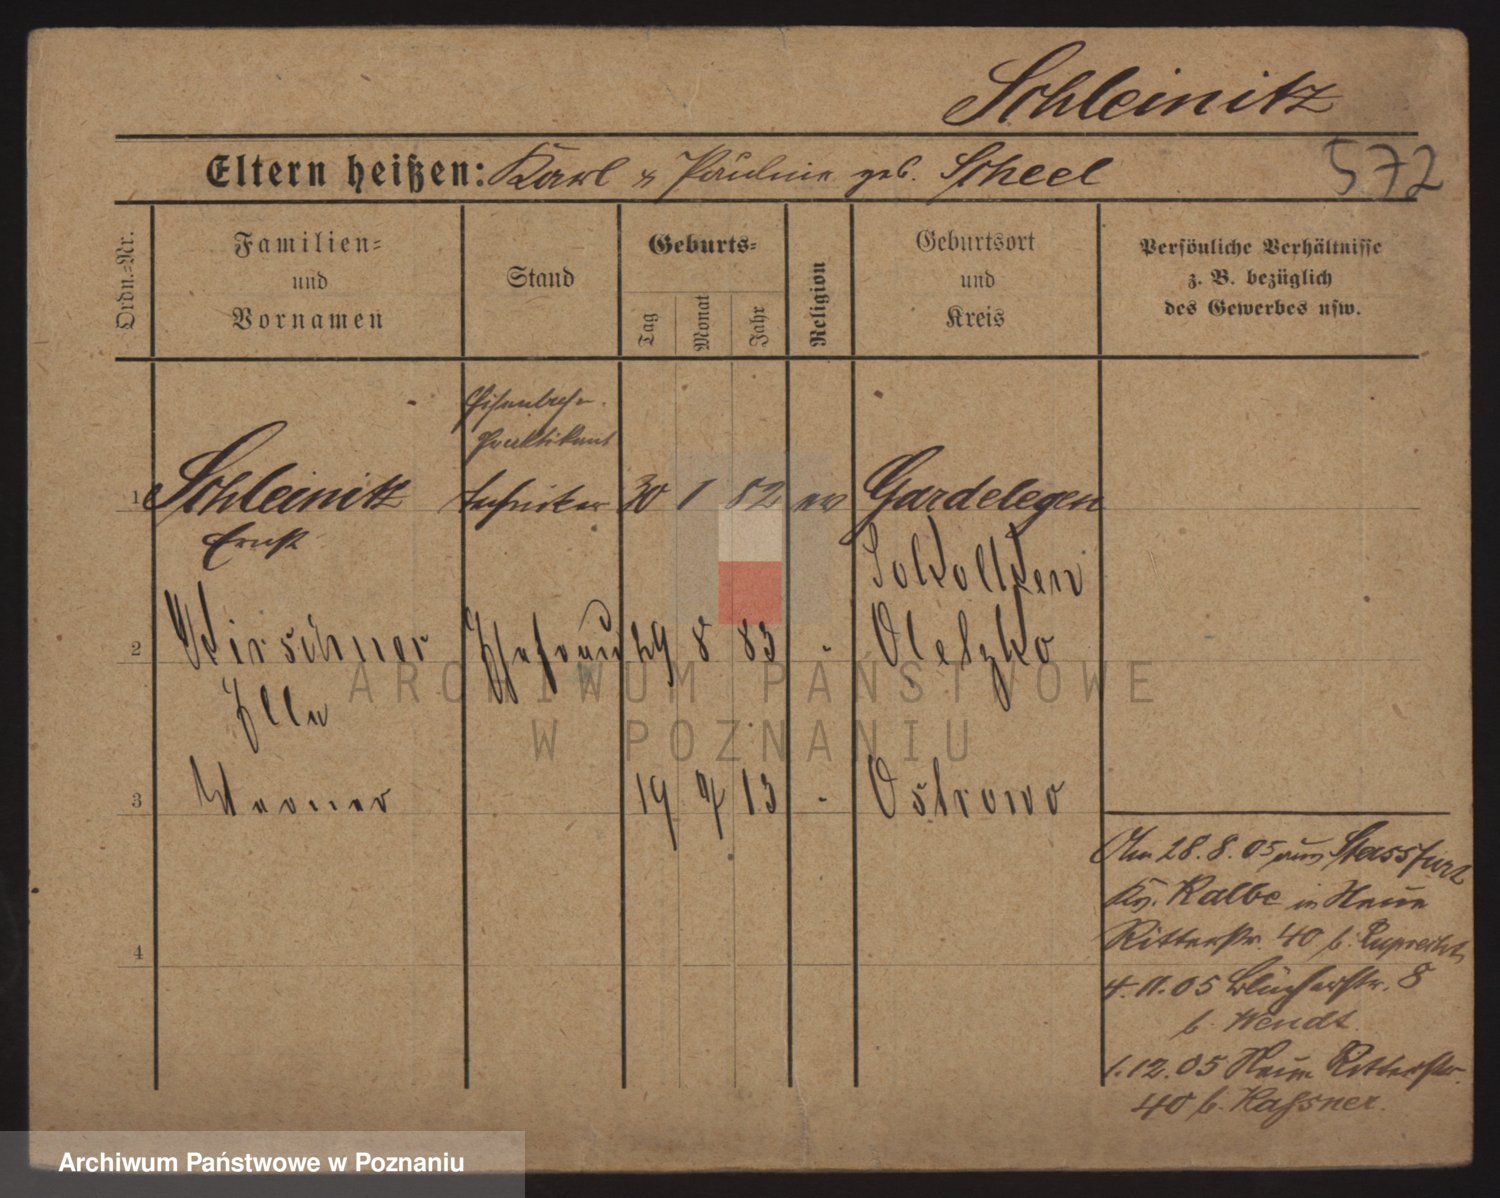 Schleinitz
Eltern heißen: Karl & Pauline geb. Scheel
572
Ordn.=Nr.
Familien=
und
Vornamen
Stand
Geburts=
Tag
Monat
Jahr
Religion
Geburtsort
und
Kreis
Persönliche Verhältnisse
z. B. bezüglich
des Gewerbes usw.
Eisenbahn-
Praktikant
1 Schleinitz Techniker 30 1 82 ev Gardelegen
Ernst
Sokolken
2 Kirschner Ehefrau 29 8 83 - Oletzko
Ella
3 Werner 19 7 13 - Ostrowo
Am 28.8.05 aus Stassfurt
Kr. Kalbe in Neue
Ritterstr. 40 b. Ruprecht
4
4.11.05 Blücherstr. 8
b. Wendt
1.12.05 Neue Ritterstr.
40 b. Kassner.
ARCHIWUM PAŃSTWOWE
W POZNANIU
Archiwum Państwowe w Poznaniu